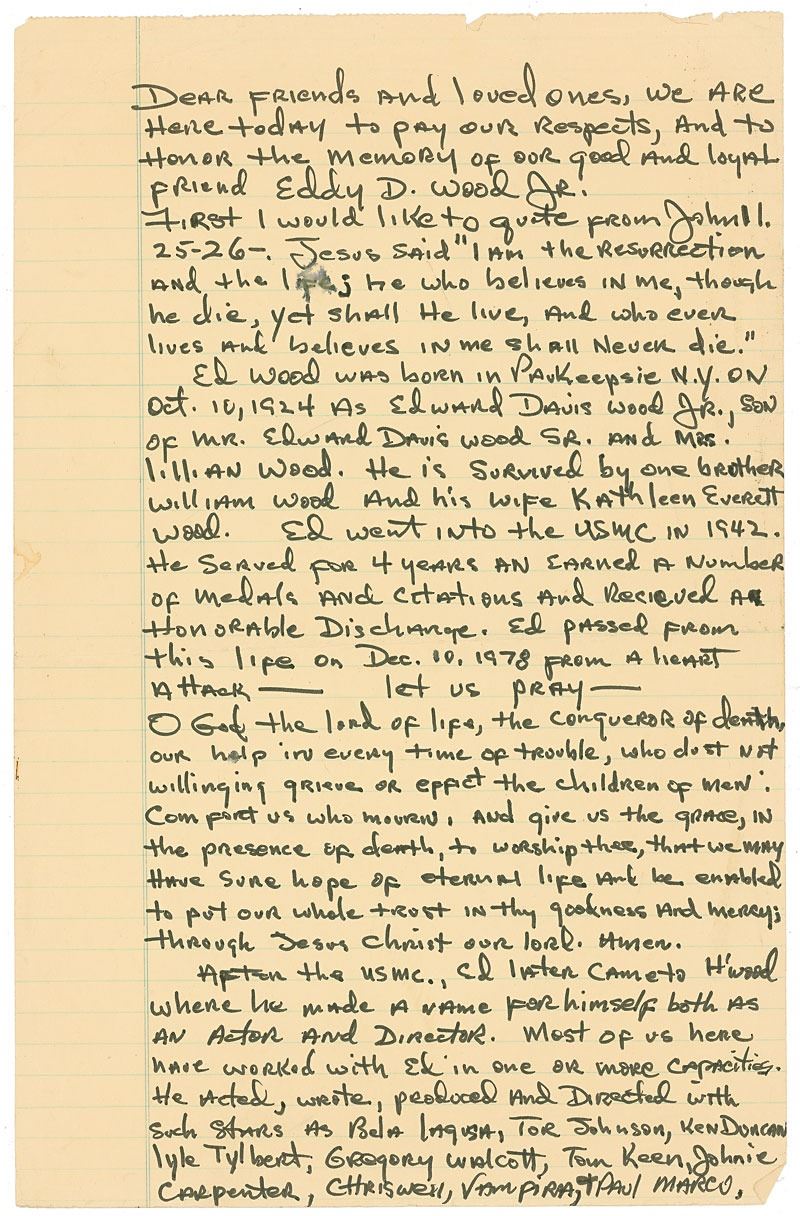 Dear friends and loved ones, we are
Here today to pay our Respects, And to
Honor the memory of our good and loyal
friend Eddy D. Wood Jr.
First I would like to quite from John 11.
25-26-. Jesus said "I am the Resurrection
And the life; He who believes in me, though
he die, yet shall He live, And who ever
lives and believes in me shall Never die."
Ed Wood was born in Paukeepsie N.Y. on
Oct. 10, 1924 As Edward Davis Wood Jr., son
of Mr. Edward Davis Wood Sr. and Mrs.
lillian Wood. He is survived by one brother
William Wood And his wife Kathleen Everett
Wood. Ed went into the USMC in 1942.
He Served for 4 years an Earned a Number
of Medals and Citations and Recieved an
Honorable Discharge. Ed passed from
this life on Dec. 10, 1978 from a heart
Attack — let us pray —
O God the lord of life, the conqueror of death,
our help in every time of trouble, who dost not
willinging grieve or effict the children of men.
Comfort us who mourn, and give us the grace, in
the presence of death, to worship thee, that we may
Have Sure hope of eternal life and be enabled
to put our whole trust in thy goodness and mercy;
through Jesus Christ our lord. Amen.
After the USMC., Ed later came to H'wood
where he made a name for himself both as
an Actor and Director. Most of us here
have worked with Ed in one or more capacities.
He Acted, wrote, produced and Directed with
such Stars as Bela lagusa, Tor Johnson, Ken Duncan
lyle Tylbert, Gregory Walcott, Tom Keen, Johnie
Carpenter, Chriswell, Vampira, + Paul Marco,